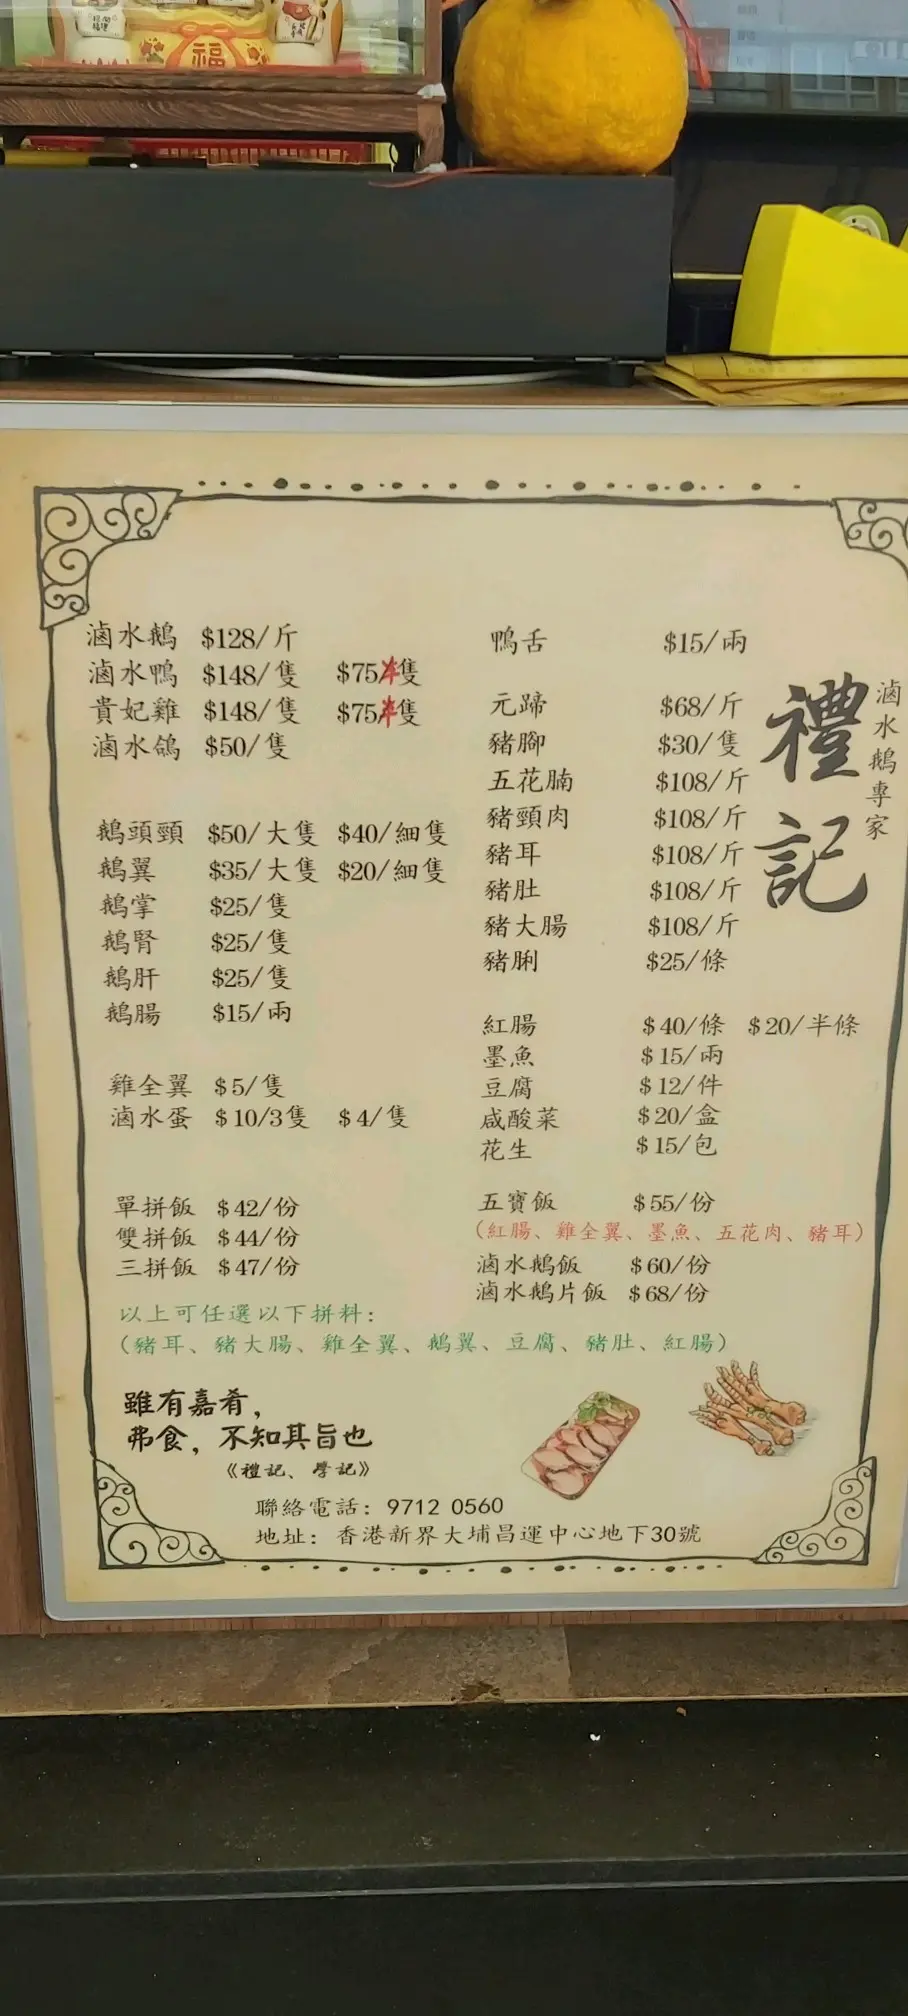 福
滷水鵝 $128/斤
滷水鴨 $148/隻 $75半隻
貴妃雞 $148/隻 $75半隻
滷水鴿 $50/隻
鵝頭頸 $50/大隻 $40/細隻
鵝翼 $35/大隻 $20/細隻
鵝掌 $25/隻
鵝腎 $25/隻
鵝肝 $25/隻
鵝腸 $15/兩
雞全翼 $5/隻
滷水蛋 $10/3隻 $4/隻
單拼飯 $42/份
雙拼飯 $44/份
三拼飯 $47/份
以上可任選以下拼料:
(豬耳、豬大腸、雞全翼、鵝翼、豆腐、豬肚、紅腸)
鴨舌 $15/兩
元蹄 $68/斤
豬腳 $30/隻
五花腩 $108/斤
豬頸肉 $108/斤
豬耳 $108/斤
豬肚 $108/斤
豬大腸 $108/斤
豬脷 $25/條
紅腸 $40/條 $20/半條
墨魚 $15/兩
豆腐 $12/件
咸酸菜 $20/盒
花生 $15/包
五寶飯 $55/份
(紅腸、雞全翼、墨魚、五花肉、豬耳)
滷水鵝飯 $60/份
滷水鵝片飯 $68/份
禮記
滷水鵝專家
雖有嘉肴,
弗食, 不知其旨也
《禮記、學記》
聯絡電話: 9712 0560
地址: 香港新界大埔昌運中心地下30號